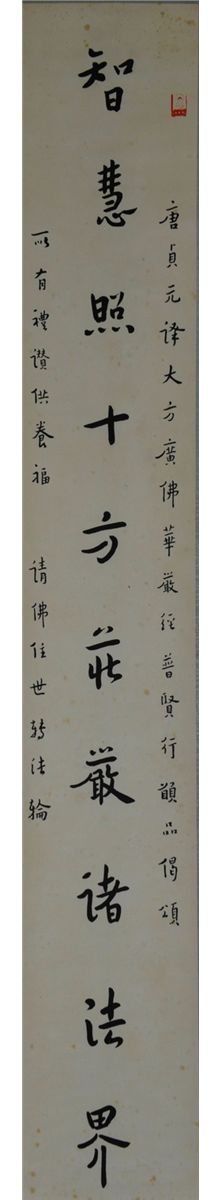 唐貞元译大方廣佛華嚴經普賢行願品偈頌
智慧照十方莊嚴諸法界
所有禮讚供養福 请佛住世轉法輪